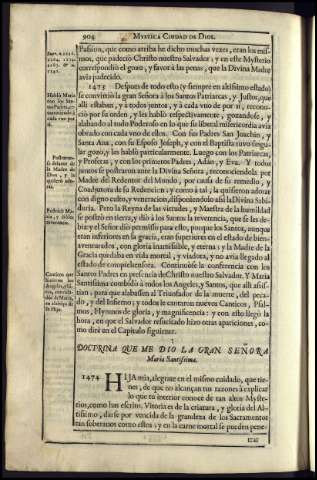 904 MYSTICA CIUDAD DE DIOS.
Passion, que como arriba he dicho muchas vezes, eran los mis-
mos, que padeciò Christo nuestro Salvador; y en este Mysterio
correspondiò el gozo, y favor à las penas, que la Divina Madre
avia padecido.
1473 Despues de todo esto (y siempre en altissimo estado)
se convirtiò la gran Señora à los Santos Patriarcas, y Justos, que
alli estaban, y à todos juntos, y à cada vno de por sì, recono-
ciò por su orden, y les hablò respectivamente, gozandose, y
alabando al todo Poderoso en lo que su liberal misericordia avia
obrado con cada vno de ellos. Con sus Padres San Joachin, y
Santa Ana, con su Esposo Joseph, y con el Baptista tuvo singu-
lar gozo, y les hablò particularmente. Luego con los Patriarcas,
y Profetas, y con los primeros Padres, Adan, y Eva. Y todos
juntos se postraron ante la Divina Señora, reconociendola por
Madre del Redentor del Mundo, por causa de su remedio, y
Coadjutora de su Redencion: y como à tal, la quisieron adorar
con digno culto, y veneracion, disponiendolo assi la Divina Sabi-
duria. Pero la Reyna de las virtudes, y Maestra de la humildad
se postrò en tierra, y diò à los Santos la reverencia, que se les de-
bia: y el Señor diò permisso para esto, porque los Santos, aunque
eran inferiores en la gracia, eran superiores en el estado de bien-
aventurados, con gloria inamissible, y eterna: y la Madre de la
Gracia quedaba en vida mortal, y viadora, y no avia llegado al
estado de comprehensora. Continuòse la conferencia con los
Santos Padres en presencia de Christo nuestro Salvador. Y Maria
Santissima combidò à todos los Angeles, y Santos, que alli assis-
tian, para que alabassen al Triunfador de la muerte, del peca-
do, y del Infierno; y todos le cantaron nuevos Canticos, Psal-
mos, Hymnos de gloria, y magnificencia: y con esto llegò la
hora, en que el Salvador resucitado hizo otras apariciones, co-
mo dirè en el Capitulo siguiente.
DOCTRINA QUE ME DIO LA GRAN SEÑORA
Maria Santissima.
1474 HIJA mia, alegrate en el mismo cuidado, que tie-
nes, de que no alcançan tus razones à explicar
lo que tu interior conoce de tan altos Myste-
rios, como has escrito. Vitoria es de la criatura, y gloria del Al-
tissimo, darse por vencida de la grandeza de los Sacramentos
tan soberanos como estos: y en la carne mortal se pueden pene-
trar